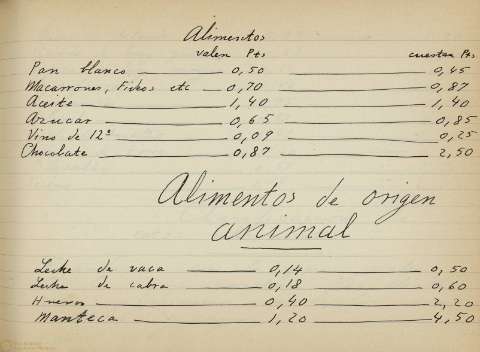 Alimentos
valen Pts cuestan Pts
Pan blanco 0,50 0,45
Macarrones, Fideos etc 0,70 0,87
Aceite 1,40 1,40
Azucar 0,65 0,85
Vino de 12º 0,09 0,25
Chocolate 0,87 2,50
Alimentos de origen
animal
Leche de vaca 0,14 0,50
Leche de cabra 0,18 0,60
Huevos 0,40 2,20
Manteca 1,20 4,50